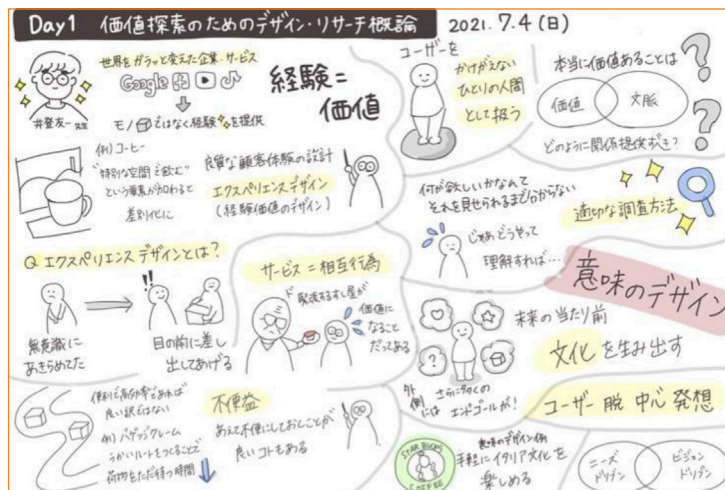 Day1 価値探索のためのデザイン・リサーチ概論
2021.7.4(日)
世界をガラッと変えた企業・サービス
Google
モノではなく経験を提供
井登友一 先生
経験=
価値
例)コーヒー
"特別な空間で飲む"
という要素が加わると
差別化に
良質な顧客体験の設計
エクスペリエンスデザイン
(経験価値のデザイン)
Q エクスペリエンスデザインとは?
無意識に
あきらめてた
!!
目の前に差し
出してあげる
サービス=相互行為
緊張するすし屋が
価値に
なること
だってある
便利で高効率であれば
良い訳ではない
例)バゲッジクレーム
うかいルートをつくることで
荷物をただ待つ時間
不便益
あえて不便にしておくことが
良いコトもある
ユーザーを
かけがえない
ひとりの人間
として扱う
本当に価値あることは
?
価値
文脈
?
どのように関係提供すべき?
何が欲しいかなんて
それを見せられるまで分からない
じゃあどうやって
理解すれば…
適切な調査方法
意味のデザイン
?
未来の当たり前
文化を生み出す
外側には
さらに多くの
エンドゴールが!
ユーザー脱中心発想
STARBUCKS
COFFEE
意味のデザイン例
手軽にイタリア文化を
楽しめる
ニーズ
ドリブン
ビジョン
ドリブン